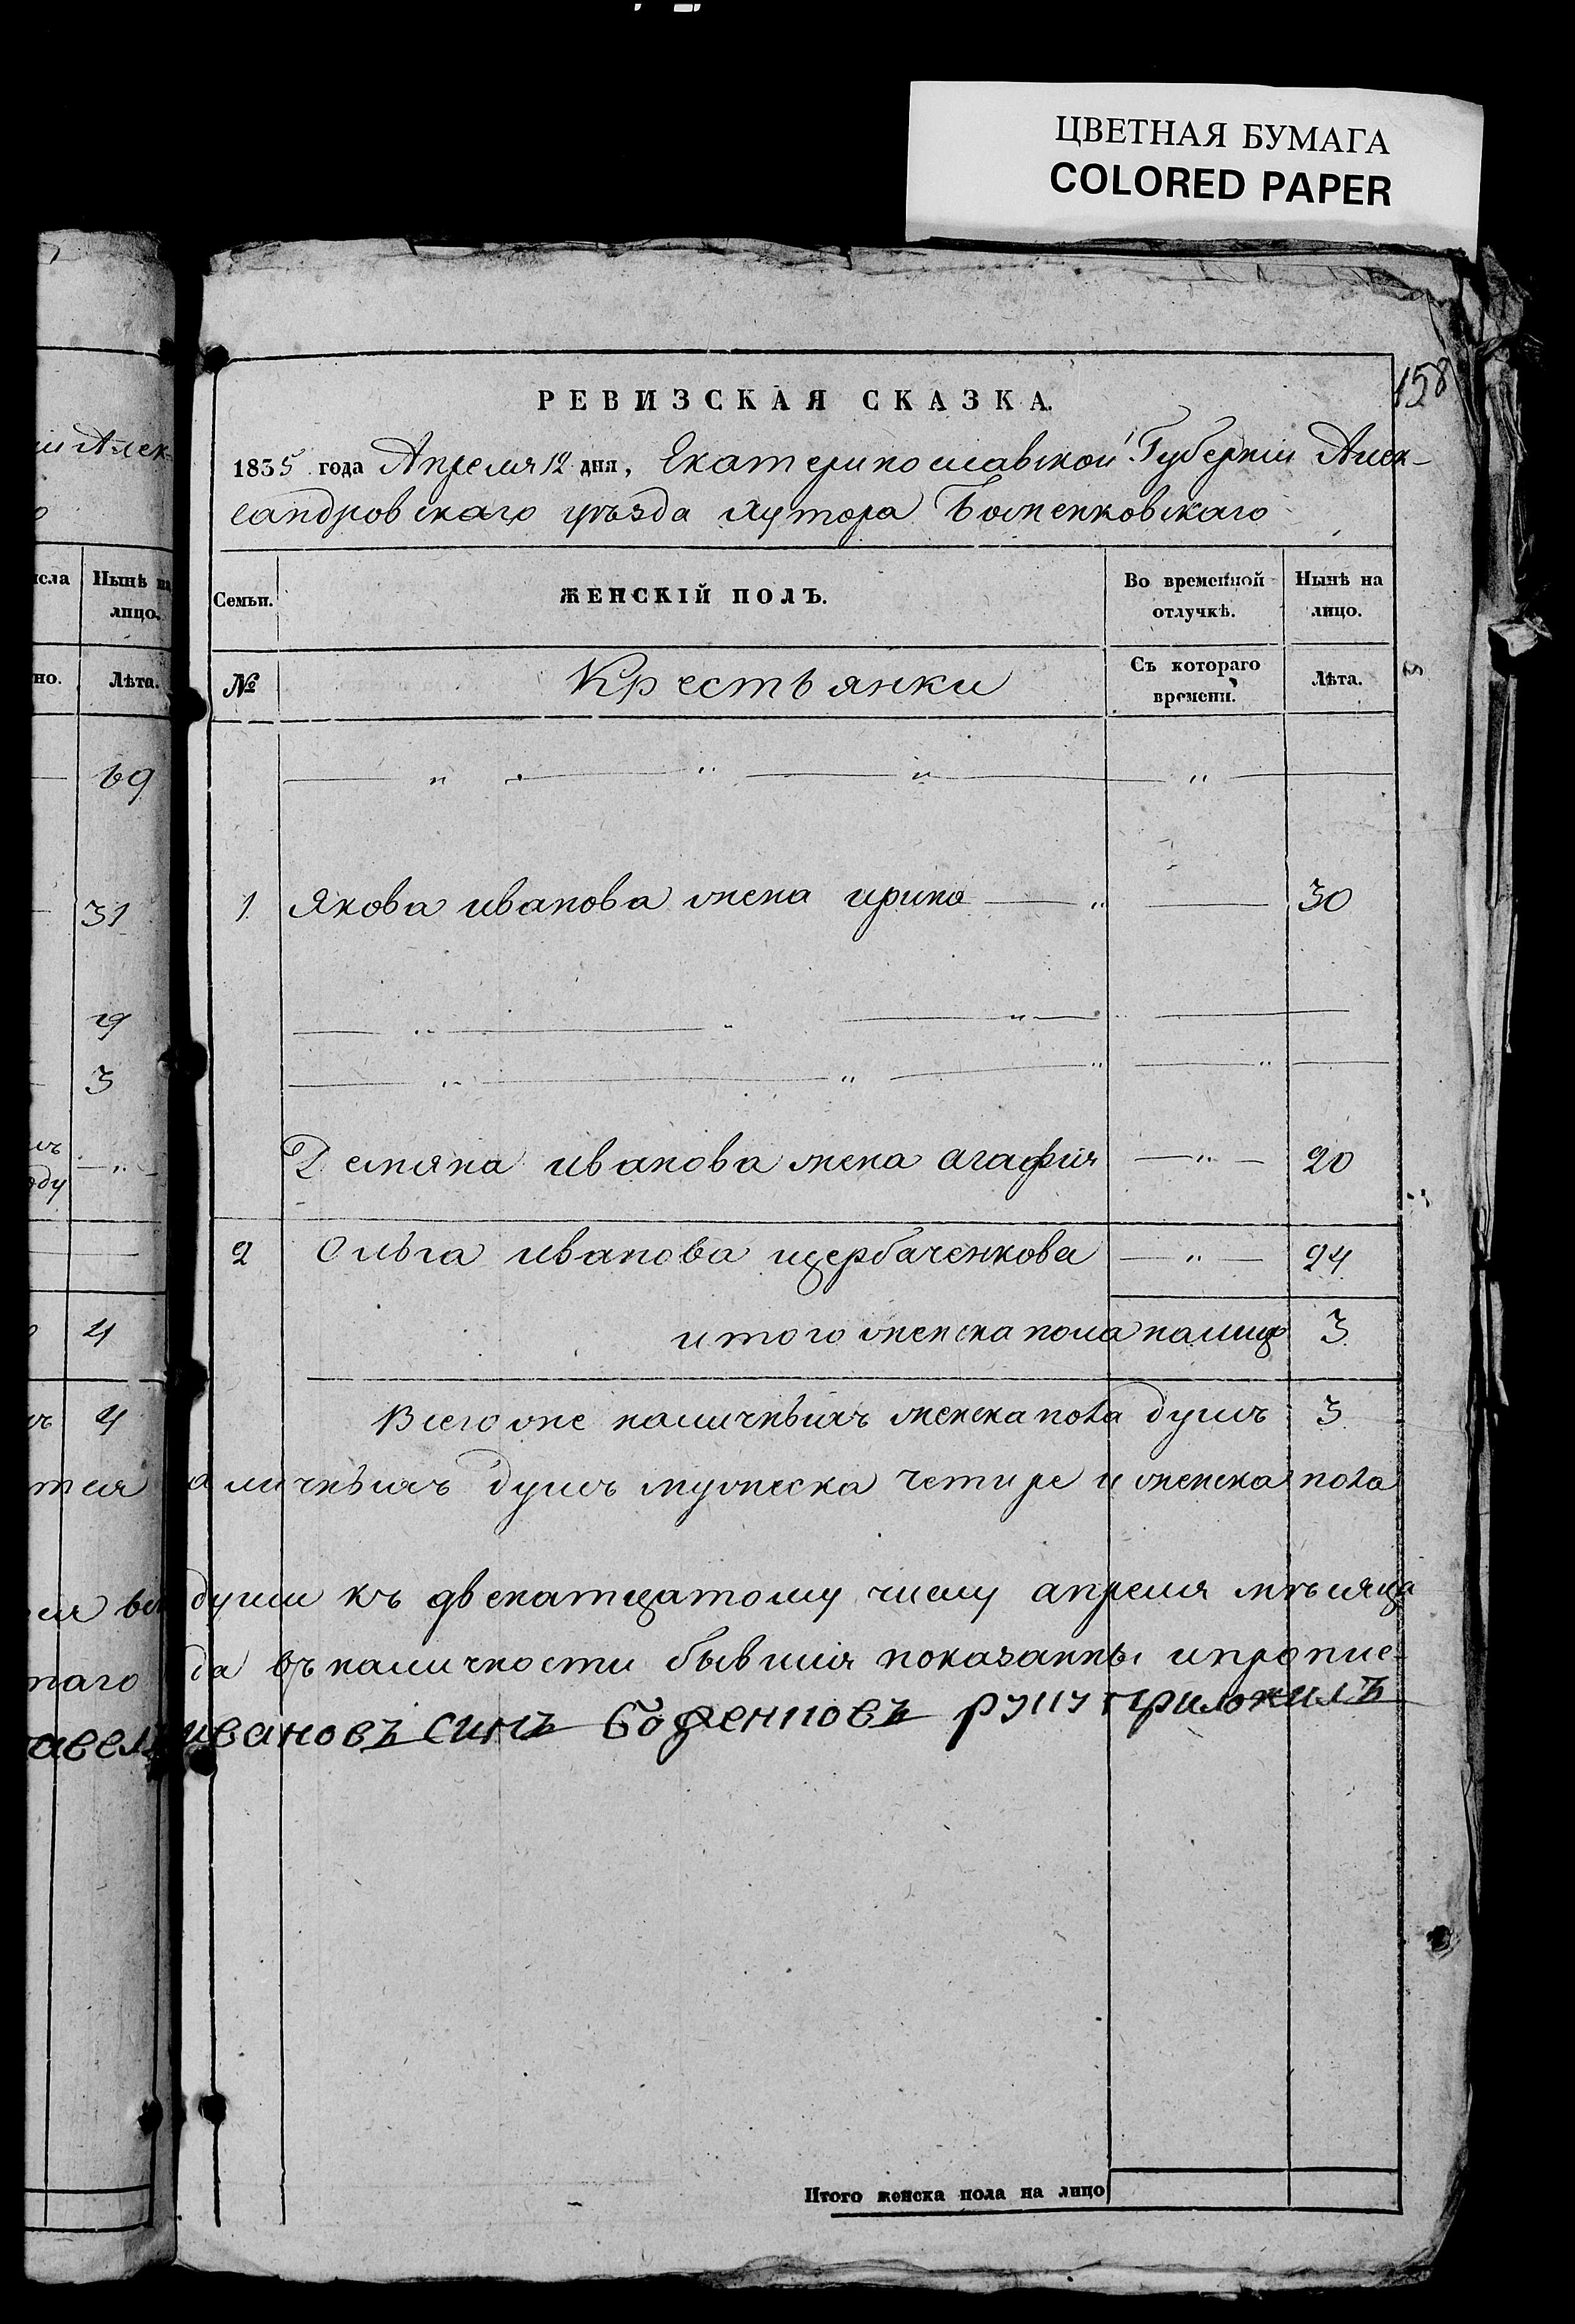 ЦВЕТНАЯ БУМАГА
COLORED PAPER
158
РЕВИЗСКАЯ СКАЗКА.
1835 года Апреля 12 дня, Екатеринославской Губернии Алек-
сандровскаго уѣзда хутора Боженковскаго
Семьи.
ЖЕНСКІЙ ПОЛЪ.
Во временной отлучкѣ.
Нынѣ на лицо.
№
Крестьянки
Съ котораго времени.
Лѣта.
1 Якова иванова жена ирина 30
Демяна иванова жена агафия 20
2 Ольга иванова щербаченкова 24
итого женска пола налицо 3
Всего же наличныхъ женска пола душъ 3
аличныхъ душъ мужеска четире и женска пола
души къ двенатцатому числу апреля мѣсяца
да въ наличности бывшия показанны ипрописе-
ивановъ синъ приложилъ
Итого женска пола на лицо
ий Алек-
Нынѣ на
лицо.
но.
Лѣта.
69
31
19
3
4
4